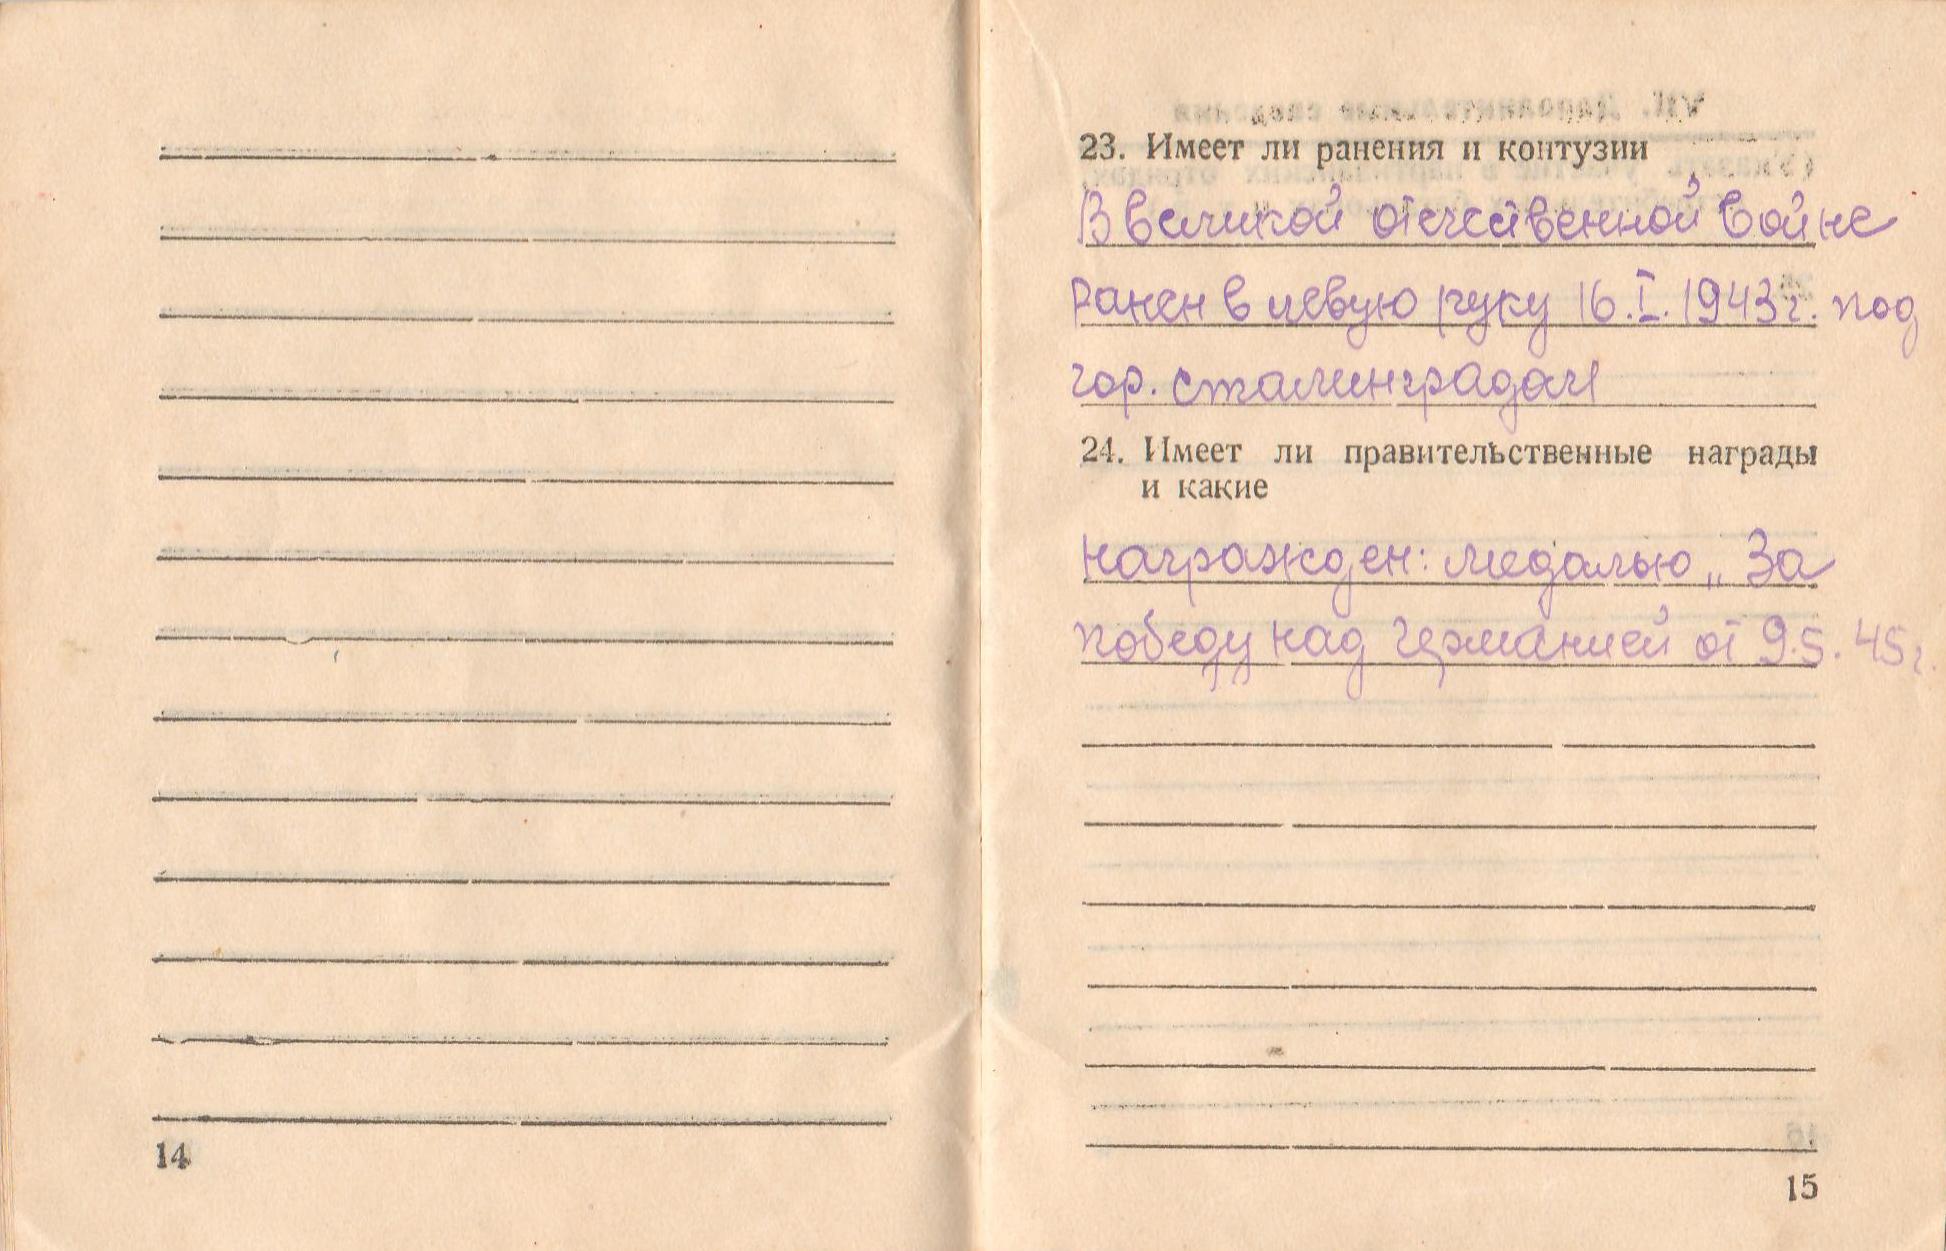 14
23. Имеет ли ранения и контузии
В великой отечественной войне
ранен в левую руку 16.I.1943г. под
гор. сталинградом
24. Имеет ли правительственные награды
и какие
награжден: медалью „За
победу над Германией от 9.5.45г.
15